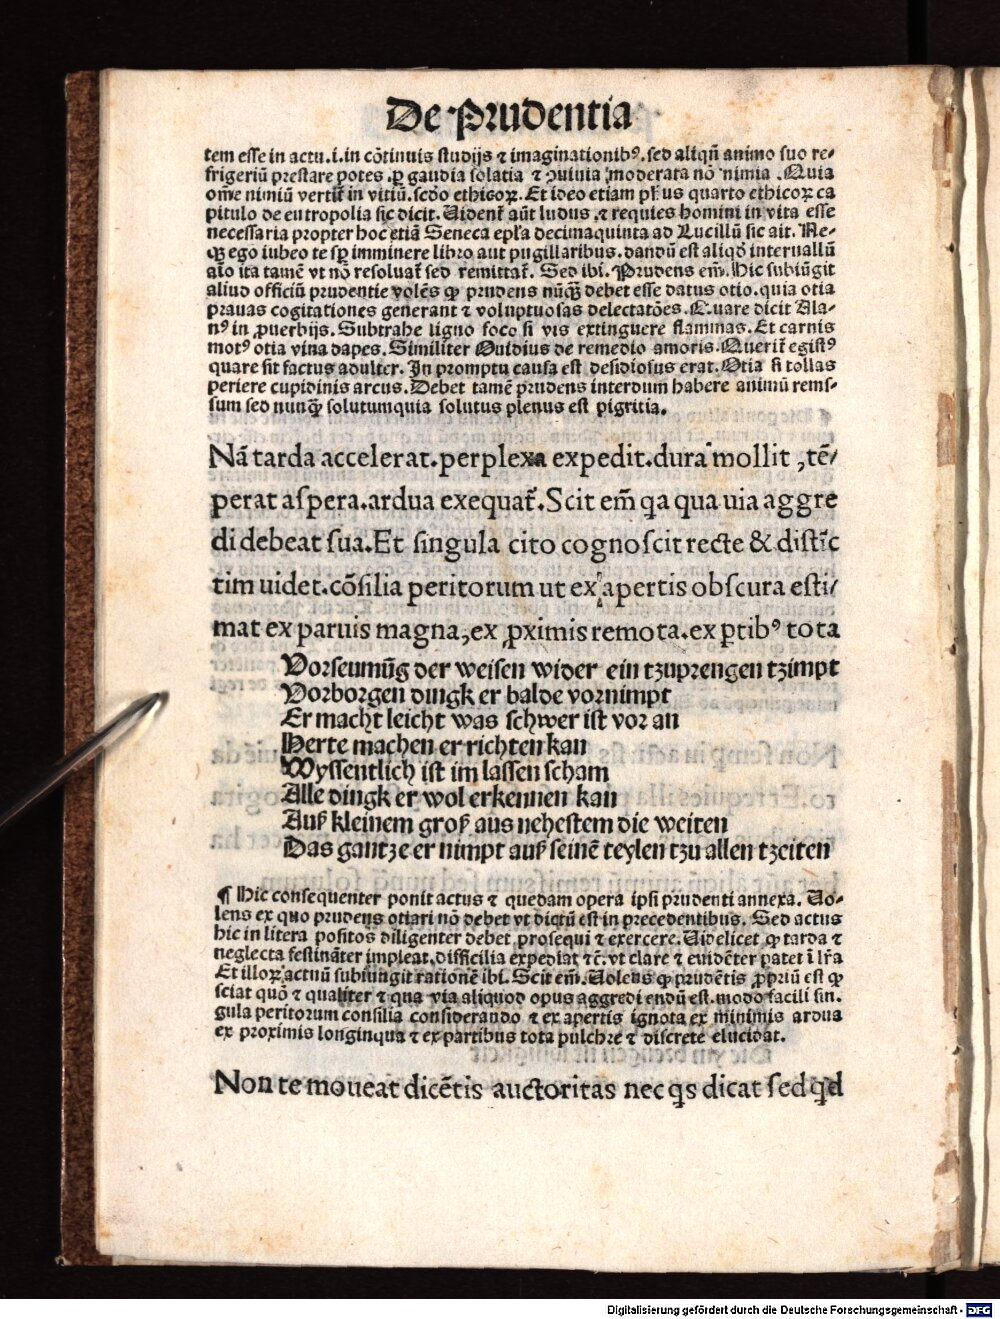 De Prudentia
tem esse in actu.i.in cōtinuis studijs ⁊ imaginationibꝰ.sed aliqñ animo suo re⸗
frigeriū prestare potes.ꝑ gaudia solatia ⁊ ꝯuiuia moderata nō nimia.Quia
om̄e nimiū vertit̄ in vitiū.scďo ethicoꝝ. Et ideo etiam pħus quarto ethicoꝝ ca
pitulo de eutropolia sic dicit. Uident̄ aūt ludus.⁊ requies homini in vita esse
necessaria propter hoc etiā Seneca epl̄a decimaquinta ad Lucillū sic ait. Ne⸗
qꝫ ego iubeo te sꝑ imminere libro aut pugillaribus.dandū est aliqď interuallū
aīo ita tamē vt nō resoluat̄ sed remittat̄. Sed ibi. Prudens em̄. Hic subiūgit
aliud officiū prudentie volēs ꝙ prudens nūqꝫ debet esse datus otio.quia otia
prauas cogitationes generant ⁊ voluptuosas delectatōes. Quare dicit Ala⸗
nꝰ in ꝓuerbijs. Subtrahe ligno foco si vis extinguere flammas. Et carnis
motꝰ otia vina dapes. Similiter Ouidius de remedio amoris. Querit̄ egistꝰ
quare sit factus adulter. In promptu causa est desidiosus erat. Otia si tollas
periere cupidinis arcus. Debet tamē prudens interdum habere animū remis⸗
sum sed nunqꝫ solutum quia solutus plenus est pigritia.
Nā tarda accelerat.perplexa expedit.dura mollit ,tē/
perat aspera.ardua exequat̄.Scit em̄ qa qua uia aggre
di debeat sua.Et singula cito cognoscit recte & distīc
tim uidet.cōsilia peritorum ut ex apertis obscura esti/
mat ex paruis magna,ex ꝓximis remota.ex ꝑtibꝰ tota
Vorseumūg der weisen wider ein tzuprengen tzimpt
Vorborgen dingk er balde vornimpt
Er macht leicht was schwer ist vor an
Herte machen er richten kan
Wyssentlich ist im lassen scham
Alle dingk er wol erkennen kan
Auß kleinem groß aus nehestem die weiten
Das gantze er nimpt auß seinē teylen tzu allen tzeiten
¶ Hic consequenter ponit actus ⁊ quedam opera ipsi prudenti annexa. Uo⸗
lens ex quo prudens otiari nō debet vt dictū est in precedentibus. Sed actus
hic in litera positos diligenter debet prosequi ⁊ exercere. Uidelicet ꝙ tarda ⁊
neglecta festināter impleat.difficilia expediat ⁊c̄.vt clare ⁊ euidēter patet ī lr̄a
Et illoꝝ actuū subiungit rationē ibi. Scit em̄. Uolens ꝙ prudētis ꝓpriū est ꝙ
sciat quō ⁊ qualiter ⁊ qua via aliquod opus aggrediendū est.modo facili sin⸗
gula peritorum consilia considerando ⁊ ex apertis ignota ex minimis ardua
ex proximis longinqua ⁊ ex partibus tota pulchre ⁊ discrete elucidat.
Non te moueat dicētis auctoritas nec qs dicat sed qd
Digitalisierung gefördert durch die Deutsche Forschungsgemeinschaft - DFG